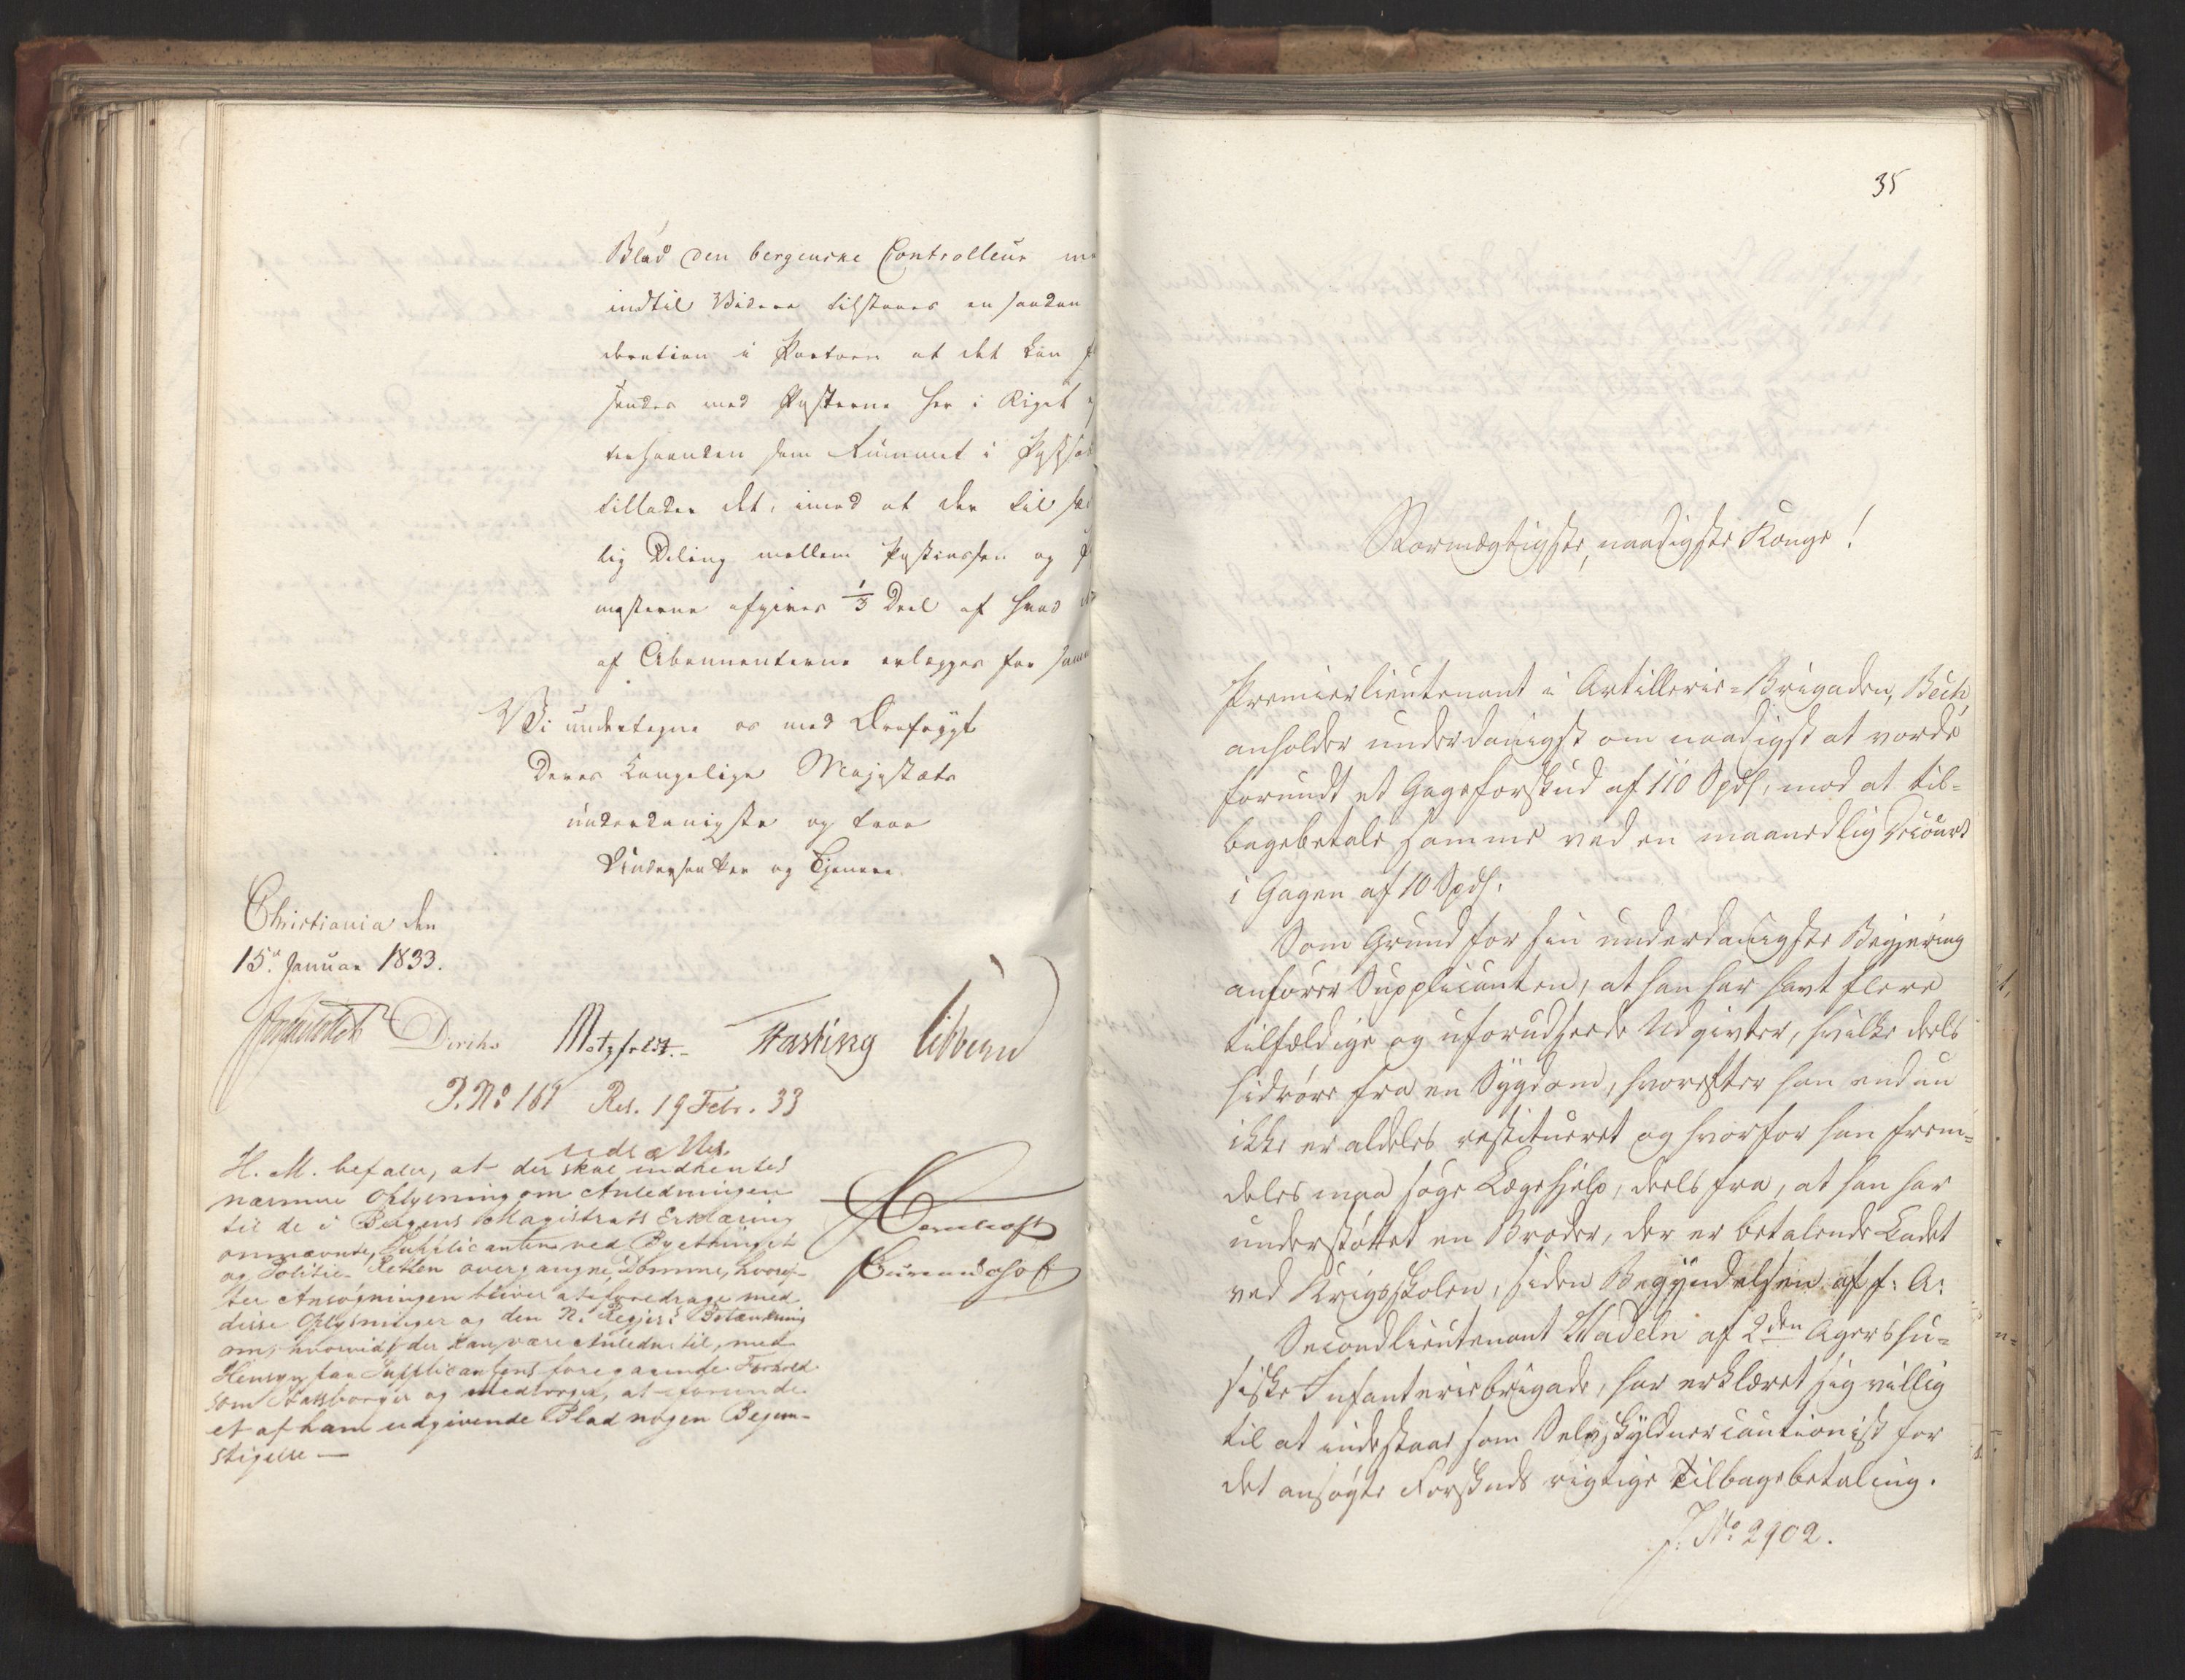 Blad den bergenske Controlleur
indtil Videre tilstaaes en saadan
deration i Portoen at det kan
sendes med Posterne her i Riget
veihaanden som Rummet i
tillader det, imod at der til
lig Deling mellem Postcassen og
mesterne afgives 1/3 Deel af hvad
af Abonnenterne erlægges for
Vi undertegne os med Ærefrygt
Deres Kongelige Majestæts
underdanigste og troe
Undersaatter og Tjenere.
Christiania den
15de Januar 1833.
Diriks Motzfeldt. Fasting Vibbern
P. No 161 Res. 19 Febr. 33
H. M. befaler, at der skal indhentes
nærmere Oplysning om Anledningen
til de i Bergens Magistrats Erklæring
ommævnte, Supplicanten ved Byethinget
og Politie-Retten overgangne Domme, hvoref-
ter Ansøgningen bliver at foredrage med
disse Oplysninger og den N. Regjers Betænkning
om, hvorvidt der kan være Anledn: til, med
Hensyn paa Supplicantens foregaaende Forhold
som Statsborger og Medborger, at forunde
et af ham udgivende Blad nogen Begun-
stigelse —
35
Stormægtigste, naadigste Konge!
Premierlieutenant i Artillerie-Brigaden, Bech,
anholder underdanigst om naadigst at vorde
forundt et Gageforskud af 110 Spdl, mod at til-
bagebetale samme ved en maanedlig Decourt
i Gagen af 10 Spdl.
Som Grund for sin underdanigste Begjering
anfører Supplicanten, at han har havt flere
tilfældige og uforudseede Udgivter, hvilke deels
hidrøre fra en Sygdom, hvorefter han endnu
ikke er aldeles restitueret og hvorfor han frem-
deles maa søge Lægehjelp, deels fra, at han har
understøttet en Broder, der er betalende Cadet
ved Krigsskolen, siden Begyndelsen af f: A:
Secondlieutenant Wadeln af 2den Agershu-
siske Infanteriebrigade, har erklæret sig villig
til at indestaae som Selvskyldnercautionist for
det ansøgte Forskuds rigtige Tilbagebetaling.
J. No 2902.